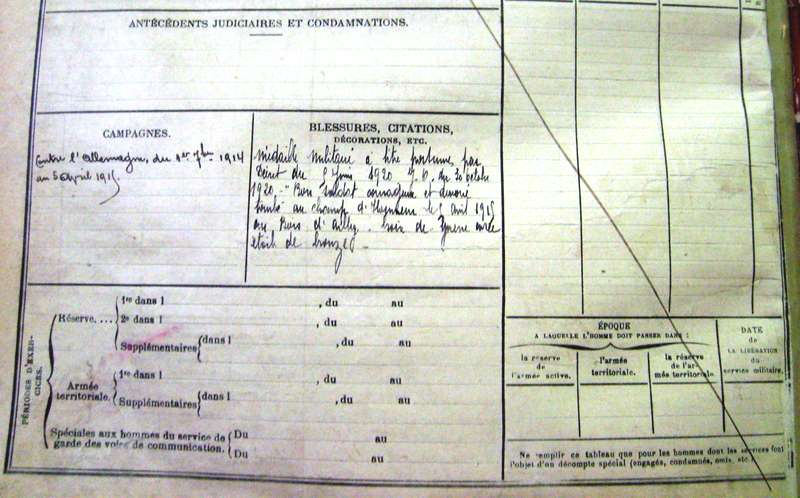 ANTÉCÉDENTS JUDICIAIRES ET CONDAMNATIONS.
CAMPAGNES.
Contre l'Allemagne, du 1er 7bre 1914
au 5 Avril 1915
BLESSURES, CITATIONS,
DÉCORATIONS, ETC.
médaille militaire à titre posthume par
Décret du 8 1920 J.O. du 20 octobre
1920. "Bon soldat courageux et dévoué
tombé au champ d'Honneur le 5 avril 1915
au Bois d'Ailly. Croix de guerre avec
étoile de bronze.
PÉRIODES D'EXERCICES.
Réserve....
1re dans l , du au
2e dans l , du au
Supplémentaires dans l , du au
Armée territoriale.
1re dans l , du au
Supplémentaires dans l , du au
Spéciales aux hommes du service de
garde des voies de communication.
Du au
Du au
ÉPOQUE
A LAQUELLE L'HOMME DOIT PASSER DANS :
la réserve
de
l'armée active.
l'armée
territoriale.
la réserve
de l'ar-
mée territoriale.
DATE
de
LA LIBÉRATION
du
service militaire.
Ne remplir ce tableau que pour les hommes dont les services font
l'objet d'un décompte spécial (engagés, condamnés, omis, etc.)